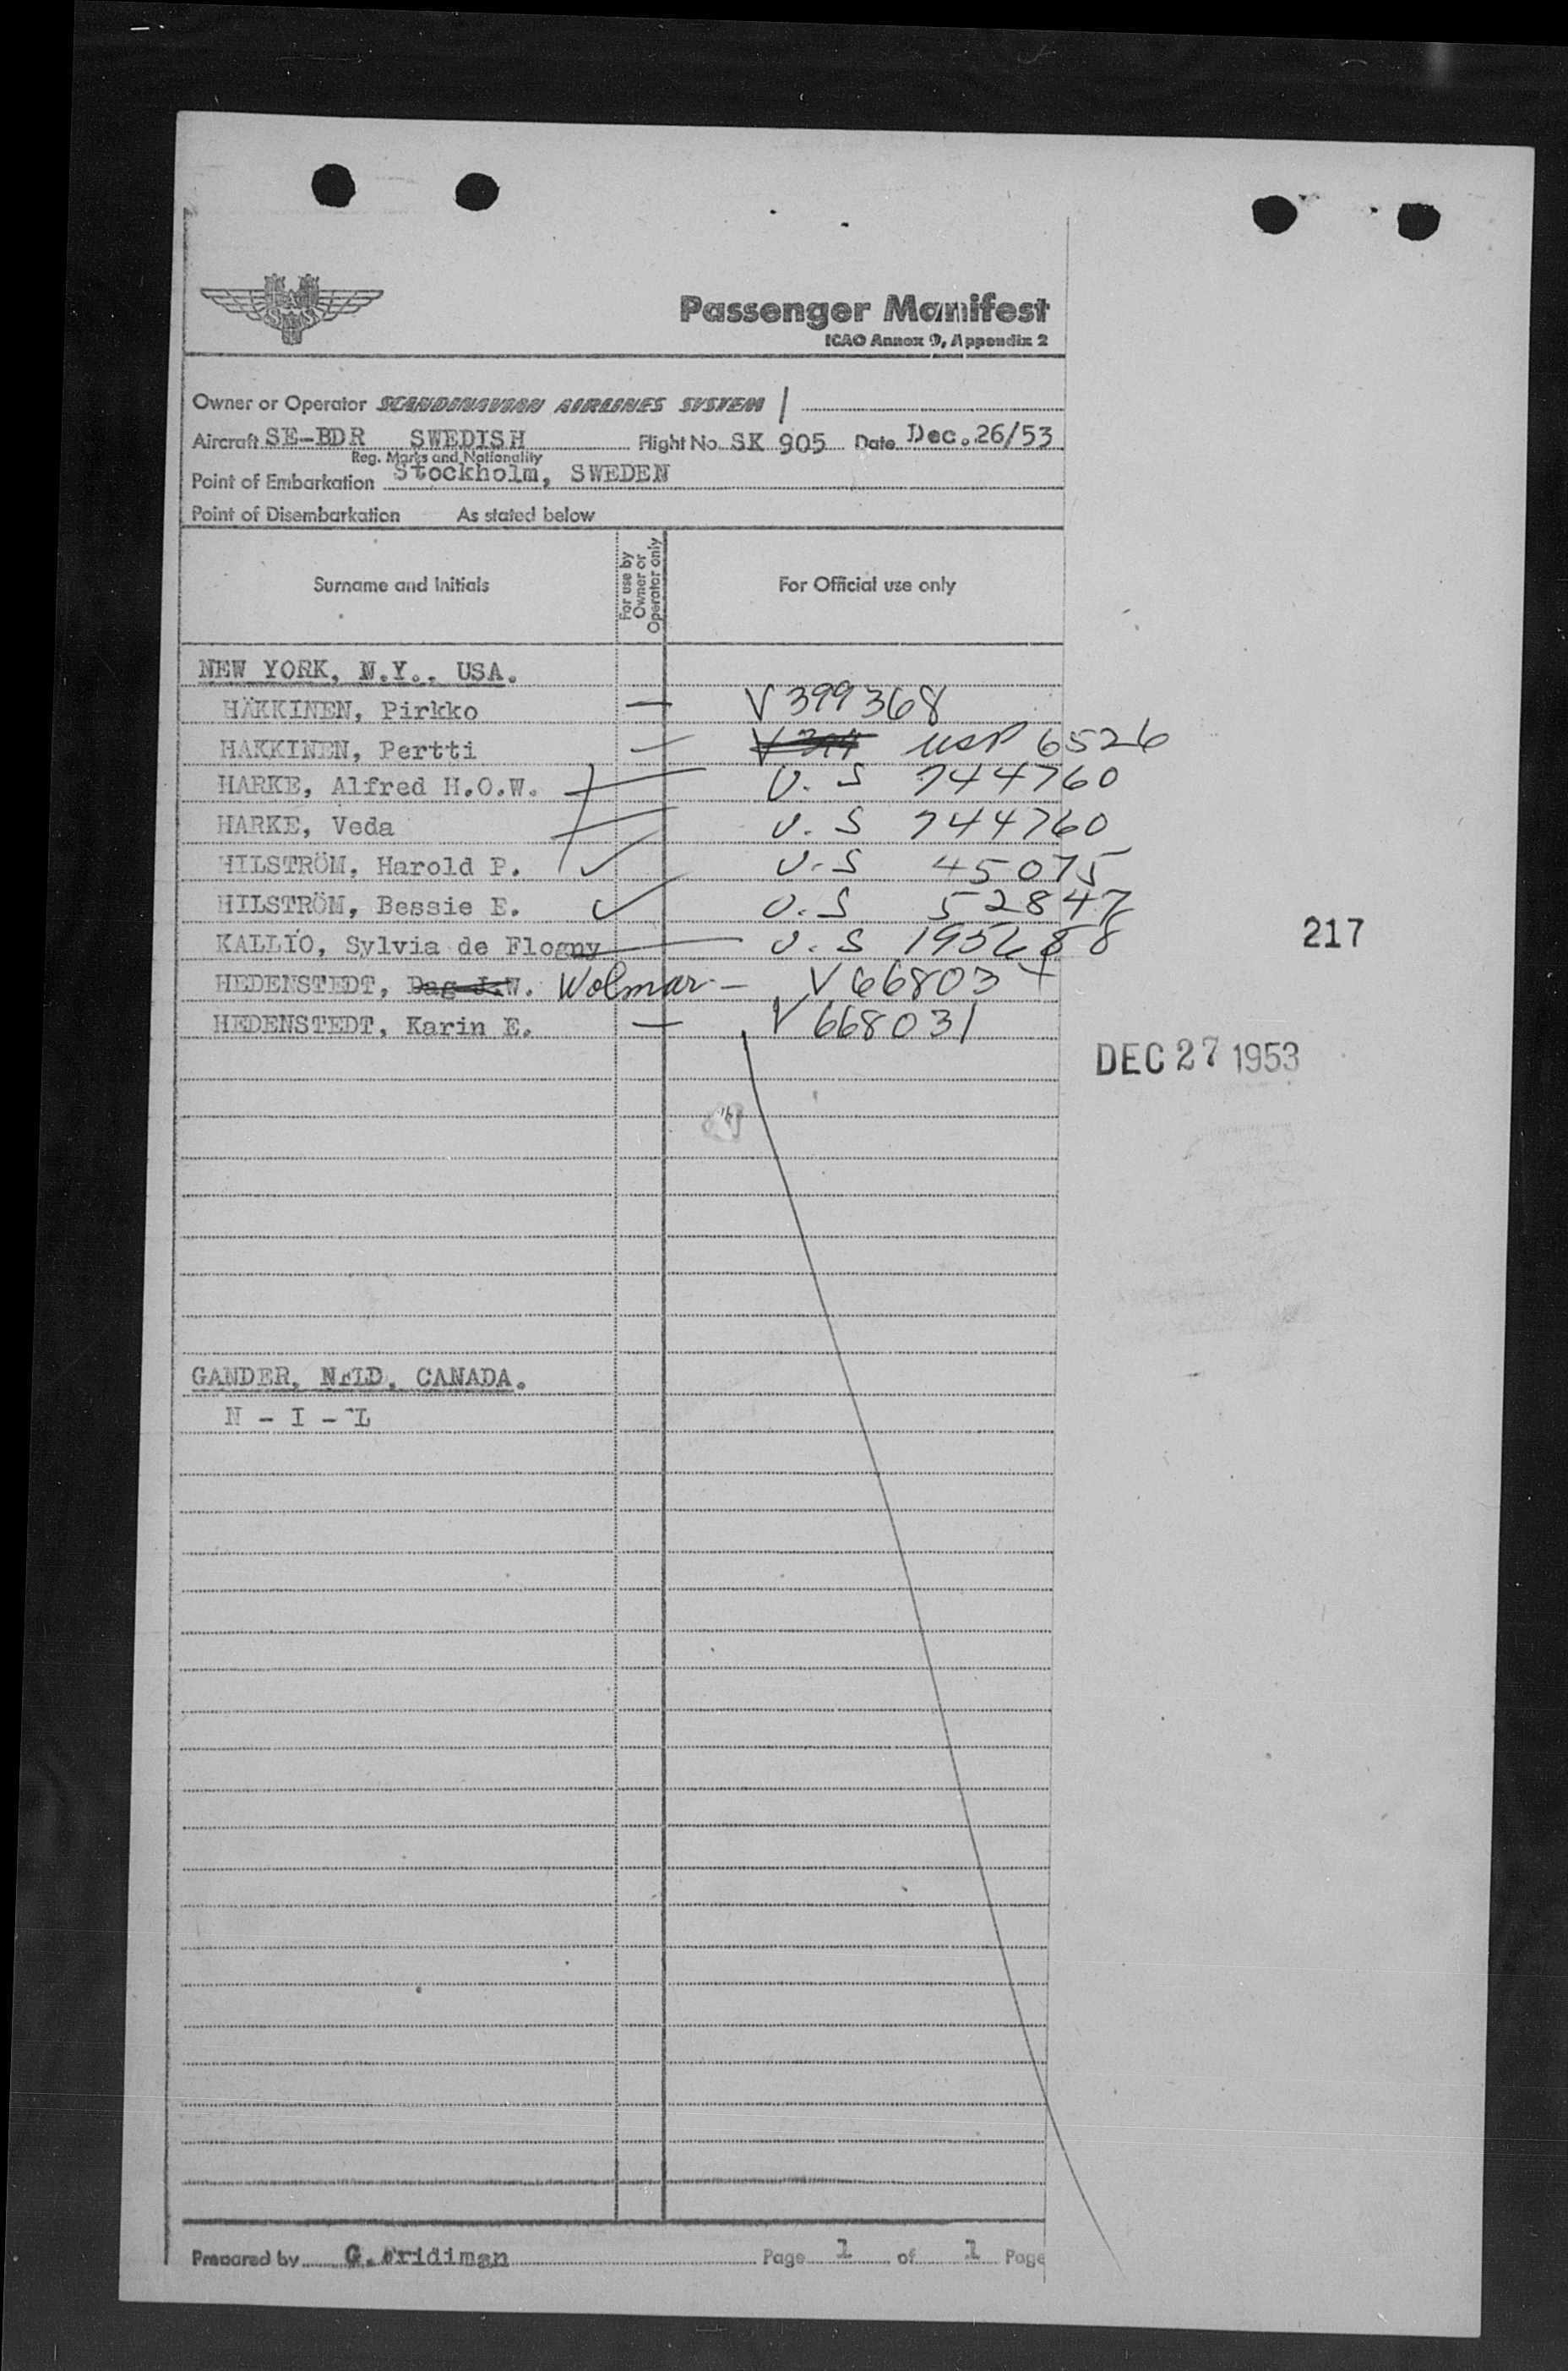 SAS
Passenger Manifest
ICAO Annex 9, Appendix 2
Owner or Operator SCANDINAVIAN AIRLINES SYSTEM /
Aircraft SE-BDR SWEDISH Flight No. SK 905 Date Dec. 26/53
Reg. Marks and Nationality
Point of Embarkation Stockholm, SWEDEN
Point of Disembarkation As stated below
Surname and Initials For use by Owner or Operator only For Official use only
NEW YORK, N.Y., USA.
HÄKKINEN, Pirkko — V 399368
HAKKINEN, Pertti — USP 6526
HARKE, Alfred H.O.W. U.S 744760
HARKE, Veda U.S 744760
HILSTRÖM, Harold P. ✓ U.S 45075
HILSTRÖM, Bessie E. ✓ U.S 52847
KALLIO, Sylvia de Flogny U.S 195688
217
HEDENSTEDT, Dag J.W. Wolmar — V 66803
HEDENSTEDT, Karin E. — V 668031
DEC 27 1953
GANDER, NFLD, CANADA.
N - I - L
Prepared by G. Fridiman Page 1 of 1 Page